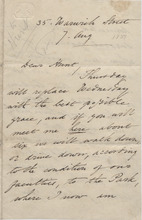 35 Warwick Street
7. Aug
Dear Hunt,
Thursday
will replace Wednesday
with the best possible
grace, and if you will
meet me here about
six we will walk down
or drive down, according
to the condition of our
faculties, to the Park,
where I now am